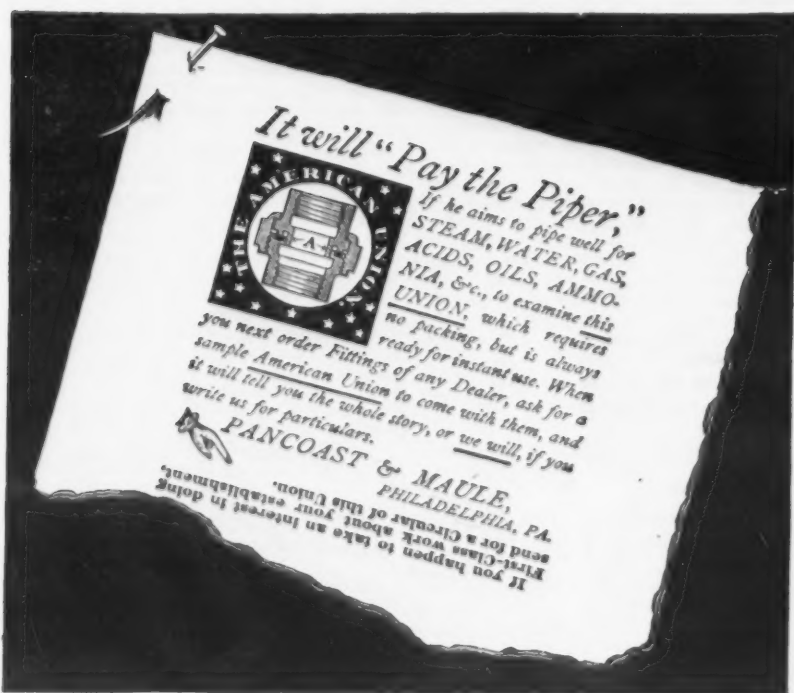 It will "Pay the Piper,"
THE AMERICAN UNION.
A
If he aims to pipe well for
STEAM, WATER, GAS,
ACIDS, OILS, AMMO-
NIA, &c., to examine this
UNION, which requires
no packing, but is always
ready for instant use. When
you next order Fittings of any Dealer, ask for a
sample American Union to come with them, and
it will tell you the whole story, or we will, if you
write us for particulars.
PANCOAST & MAULE,
PHILADELPHIA, PA.
If you happen to take an interest in doing
First-Class work about your establishment,
send for a Circular of this Union.